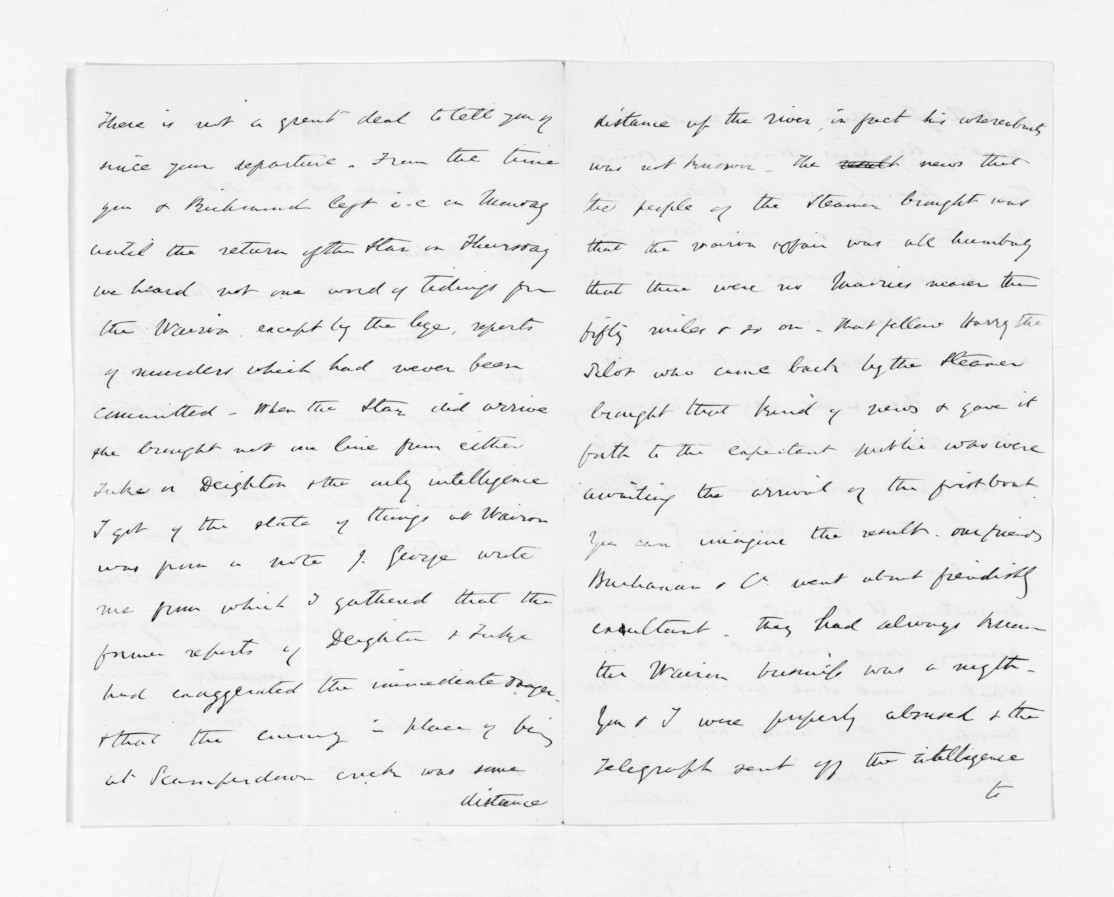 There is not a great deal to tell you of
since your departure. From the time
you & Richmond left i.e on Monday
until the return of the Star on Thursday
we heard not one word of tidings from
the Wairoa except by the bye, reports
of murders which had never been
committed - When the Star did arrive
she brought not one line from either
Tuke or Deighton & the only intelligence
I got of the state of things at Wairoa
was from a note J. George wrote
me from which I gathered that the
former reports of Deighton & Tuke
had exaggerated the immediate danger
& that the enemy in place of being
at Scamperdown creek was some
distance
distance up the river, in fact his whereabouts
was not known - The result news that
the people of the Steamer brought was
that the wairoa affair was all humbug
that there were no Maories nearer than
fifty miles & so on - That fellow Harry the
Pilot who came back by the Steamer
brought that kind of news & gave it
forth to the expectant public who were
awaiting the arrival of the first boat
You can imagine the result. our friends
Buchanan & Co. went about fiendishly
exultant - They had always known
the Wairoa business was a myth -
You & I were properly abused & the
Telegraph sent off the intelligence
to